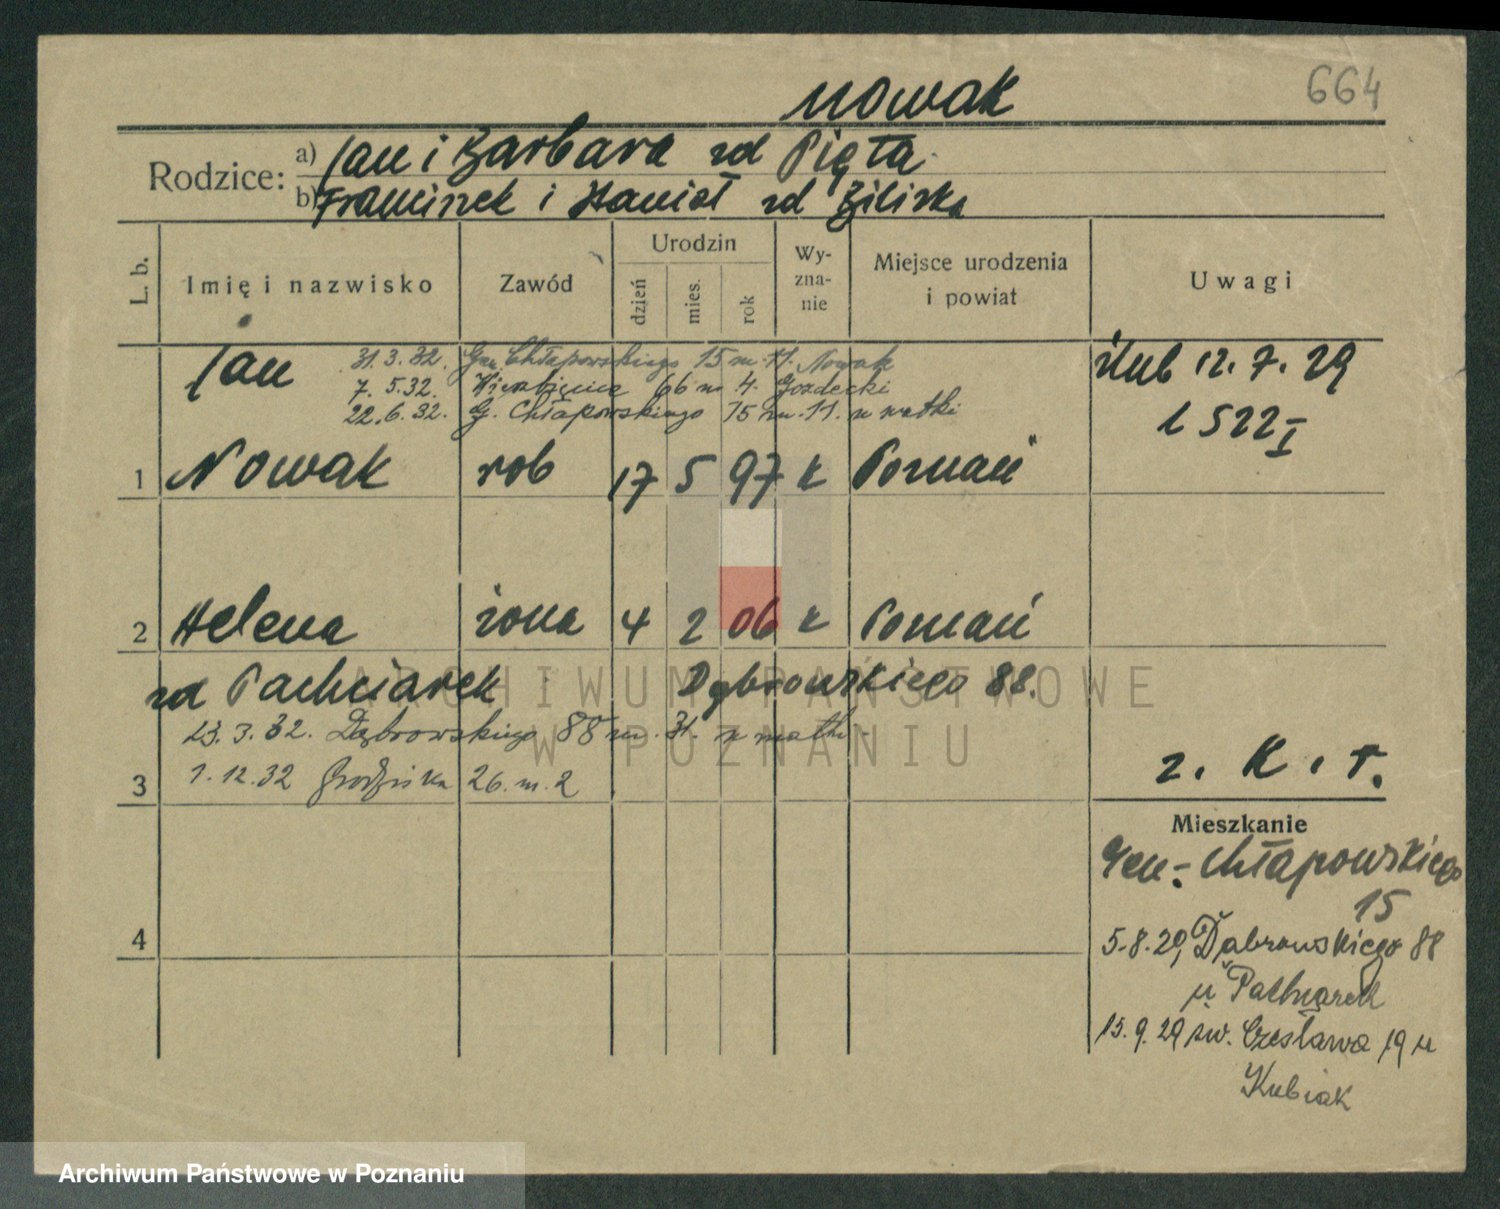 Nowak
664
Rodzice:
a) Jan i Barbara zd Pięta
b) Franciszek i zd
L. b.
Imię i nazwisko
Zawód
Urodzin
dzień
mies.
rok
Wy-
zna-
nie
Miejsce urodzenia
i powiat
Uwagi
Jan
31.3.32. Gen. Chłapowskiego 15 m. 11. Nowak
7. 5.32. Wierzbięcice 66 m 4. Gozdecki
22.6.32. G. Chłapowskiego 15 m. 11. u matki
ślub 12.7.29
L 522 I
1 Nowak rob 17 5 97 k Poznań
2 Helena żona 4 2 06 k Poznań
zd Pachciarek Dąbrowskiego 88.
23.3.32. Dąbrowskiego 88 m. 31. u matki
3 1.12.32 Grodziska 26. m. 2
z. K. r.
Mieszkanie
Gen. Chłapowskiego
15
4
5.8.29, Dąbrowskiego 88
u
15.9.29 św. Czesława 19 u
Kubiak
ARCHIWUM PAŃSTWOWE
W POZNANIU
Archiwum Państwowe w Poznaniu